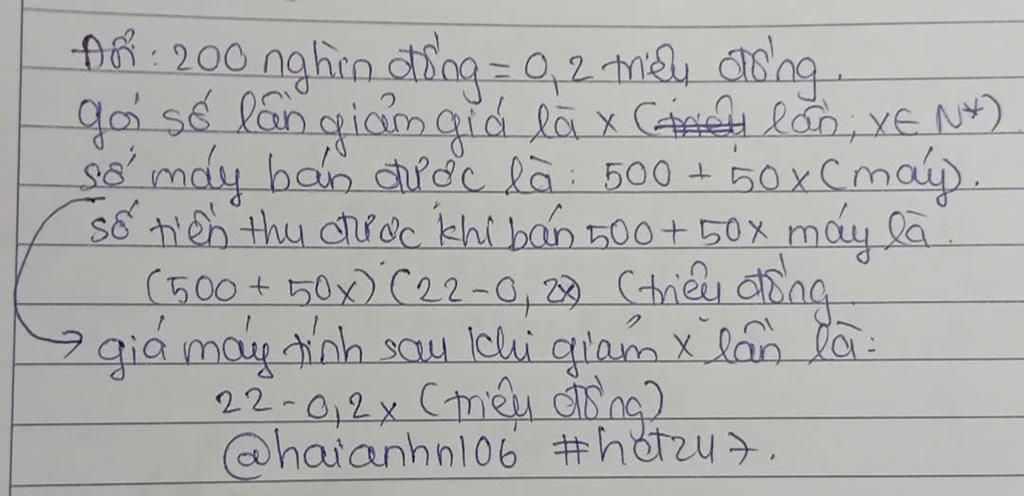 Đổi: 200 nghìn đồng = 0,2 triệu đồng.
gọi số lần giảm giá là x (lần; x ∈ N*)
số máy bán được là: 500 + 50x (máy).
số tiền thu được khi bán 500 + 50x máy là.
(500 + 50x) (22 - 0,2x) (triệu đồng
→ giá máy tính sau khi giảm x lần là:
22 - 0,2x (triệu đồng)
@haianhn106 #hot247.